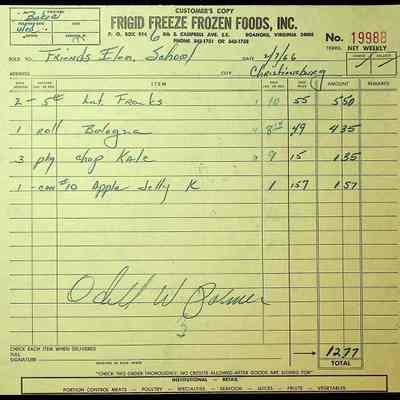 CUSTOMER'S COPY
FRIGID FREEZE FROZEN FOODS, INC.
P. O. BOX 6 5th & CAMPBELL AVE. S.E. ROANOKE, VIRGINIA
PHONE 343-1751 OR
No. 19988
TERMS: NET WEEKLY
SOLD TO Friends Elem. School DATE 2/7/66
ADDRESS CITY Christiansburg
ITEM AMOUNT REMARKS
2 - 5# Franks 10 55 5.50
1 roll Bologna 49 4.35
3 pkg Chop Kale 9 15 1.35
1 - can #10 Apple Jelly K 1 157 1.57
Odell W Palmer
CHECK EACH ITEM WHEN DELIVERED
FULL
SIGNATURE
12.77
TOTAL
"CHECK THIS ORDER THOROUGHLY: NO CREDITS ALLOWED AFTER GOODS ARE SIGNED FOR"
INSTITUTIONAL - RETAIL
PORTION CONTROL MEATS — POULTRY — SPECIALTIES — SEAFOOD — JUICES — FRUITS — VEGETABLES